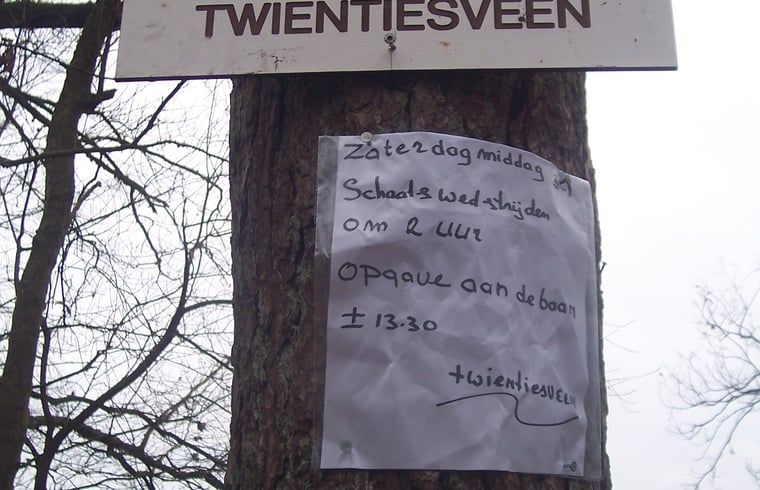 TWIENTIESVEEN
Zaterdag middag
Schaats wedstrijden
om 2 uur
opgave aan de baan
± 13.30
twientiesVEEN